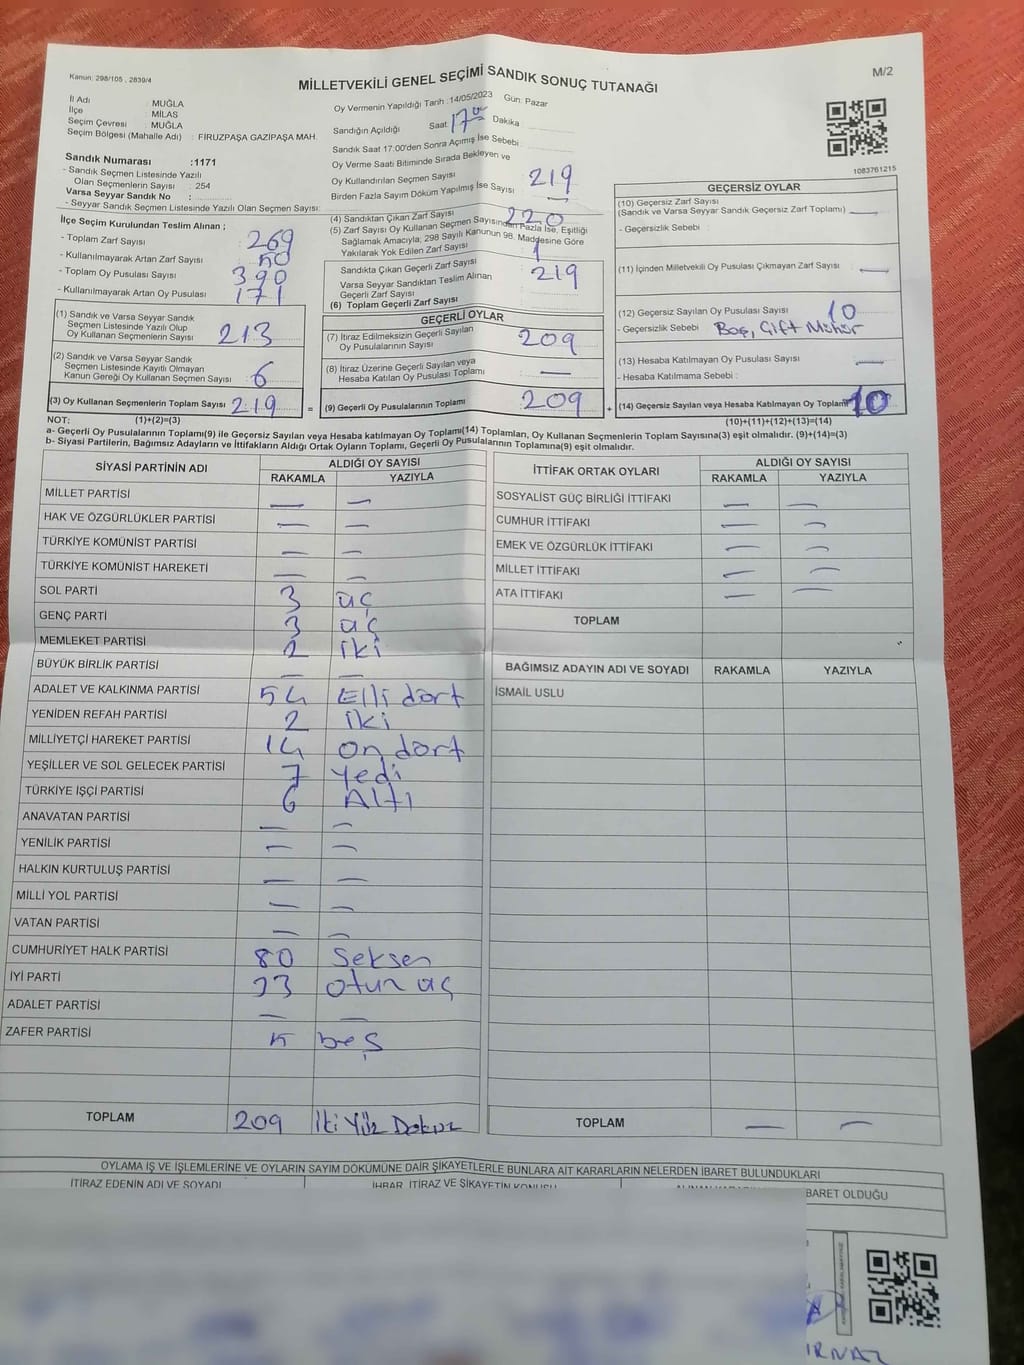 Kanun: 298/105 , 2839/4
MİLLETVEKİLİ GENEL SEÇİMİ SANDIK SONUÇ TUTANAĞI
M/2
İl Adı : MUĞLA
İlçe : MİLAS
Seçim Çevresi : MUĞLA
Seçim Bölgesi (Mahalle Adı) : FİRUZPAŞA GAZİPAŞA MAH.
Sandık Numarası :1171
- Sandık Seçmen Listesinde Yazılı
Olan Seçmenlerin Sayısı : 254
Varsa Seyyar Sandık No :
- Seyyar Sandık Seçmen Listesinde Yazılı Olan Seçmen Sayısı:
Oy Vermenin Yapıldığı Tarih :14/05/2023 Gün: Pazar
Sandığın Açıldığı Saat 17 00 Dakika
Sandık Saat 17:00'den Sonra Açımış İse Sebebi:
Oy Verme Saati Bitiminde Sırada Bekleyen ve
Oy Kullandırılan Seçmen Sayısı 219
Birden Fazla Sayım Döküm Yapılmış İse Sayısı —
1083761215
İlçe Seçim Kurulundan Teslim Alınan ;
- Toplam Zarf Sayısı 269
- Kullanılmayarak Artan Zarf Sayısı 50
- Toplam Oy Pusulası Sayısı 390
- Kullanılmayarak Artan Oy Pusulası 171
(1) Sandık ve Varsa Seyyar Sandık
Seçmen Listesinde Yazılı Olup
Oy Kullanan Seçmenlerin Sayısı 213
(2) Sandık ve Varsa Seyyar Sandık
Seçmen Listesinde Kayıtlı Olmayan
Kanun Gereği Oy Kullanan Seçmen Sayısı 6
(3) Oy Kullanan Seçmenlerin Toplam Sayısı 219 =
(4) Sandıktan Çıkan Zarf Sayısı 220
(5) Zarf Sayısı Oy Kullanan Seçmen Sayısından Fazla İse, Eşitliği
Sağlamak Amacıyla; 298 Sayılı Kanunun 98. Maddesine Göre
Yakılarak Yok Edilen Zarf Sayısı 1
Sandıkta Çıkan Geçerli Zarf Sayısı 219
Varsa Seyyar Sandıktan Teslim Alınan
Geçerli Zarf Sayısı
(6) Toplam Geçerli Zarf Sayısı
GEÇERLİ OYLAR
(7) İtiraz Edilmeksizin Geçerli Sayılan
Oy Pusulalarının Sayısı 209
(8) İtiraz Üzerine Geçerli Sayılan veya
Hesaba Katılan Oy Pusulası Toplamı —
(9) Geçerli Oy Pusulalarının Toplamı 209 +
GEÇERSİZ OYLAR
(10) Geçersiz Zarf Sayısı
(Sandık ve Varsa Seyyar Sandık Geçersiz Zarf Toplamı) —
- Geçersizlik Sebebi :
(11) İçinden Milletvekili Oy Pusulası Çıkmayan Zarf Sayısı —
(12) Geçersiz Sayılan Oy Pusulası Sayısı 10
- Geçersizlik Sebebi : Boş, Çift Mühür
(13) Hesaba Katılmayan Oy Pusulası Sayısı —
- Hesaba Katılmama Sebebi :
(14) Geçersiz Sayılan veya Hesaba Katılmayan Oy Toplamı 10
NOT: (1)+(2)=(3) (10)+(11)+(12)+(13)=(14)
a- Geçerli Oy Pusulalarının Toplamı(9) ile Geçersiz Sayılan veya Hesaba katılmayan Oy Toplamı(14) Toplamları, Oy Kullanan Seçmenlerin Toplam Sayısına(3) eşit olmalıdır. (9)+(14)=(3)
b- Siyasi Partilerin, Bağımsız Adayların ve İttifakların Aldığı Ortak Oyların Toplamı, Geçerli Oy Pusulalarının Toplamına(9) eşit olmalıdır.
SİYASİ PARTİNİN ADI ALDIĞI OY SAYISI
RAKAMLA YAZIYLA
MİLLET PARTİSİ — —
HAK VE ÖZGÜRLÜKLER PARTİSİ — —
TÜRKİYE KOMÜNİST PARTİSİ — —
TÜRKİYE KOMÜNİST HAREKETİ — —
SOL PARTİ 3 üç
GENÇ PARTİ 3 üç
MEMLEKET PARTİSİ 2 iki
BÜYÜK BİRLİK PARTİSİ — —
ADALET VE KALKINMA PARTİSİ 54 Elli dört
YENİDEN REFAH PARTİSİ 2 iki
MİLLİYETÇİ HAREKET PARTİSİ 14 on dört
YEŞİLLER VE SOL GELECEK PARTİSİ 7 Yedi
TÜRKİYE İŞÇİ PARTİSİ 6 Altı
ANAVATAN PARTİSİ — —
YENİLİK PARTİSİ — —
HALKIN KURTULUŞ PARTİSİ — —
MİLLİ YOL PARTİSİ — —
VATAN PARTİSİ — —
CUMHURİYET HALK PARTİSİ 80 Seksen
İYİ PARTİ 33 otuz üç
ADALET PARTİSİ — —
ZAFER PARTİSİ 5 beş
TOPLAM 209 İki Yüz Dokuz
İTTİFAK ORTAK OYLARI ALDIĞI OY SAYISI
RAKAMLA YAZIYLA
SOSYALİST GÜÇ BİRLİĞİ İTTİFAKI — —
CUMHUR İTTİFAKI — —
EMEK VE ÖZGÜRLÜK İTTİFAKI — —
MİLLET İTTİFAKI — —
ATA İTTİFAKI — —
TOPLAM
BAĞIMSIZ ADAYIN ADI VE SOYADI RAKAMLA YAZIYLA
İSMAİL USLU
TOPLAM — —
OYLAMA İŞ VE İŞLEMLERİNE VE OYLARIN SAYIM DÖKÜMÜNE DAİR ŞİKAYETLERLE BUNLARA AİT KARARLARIN NELERDEN İBARET BULUNDUKLARI
İTİRAZ EDENİN ADI VE SOYADI İHBAR, İTİRAZ VE ŞİKAYETİN KONUSU
İBARET OLDUĞU